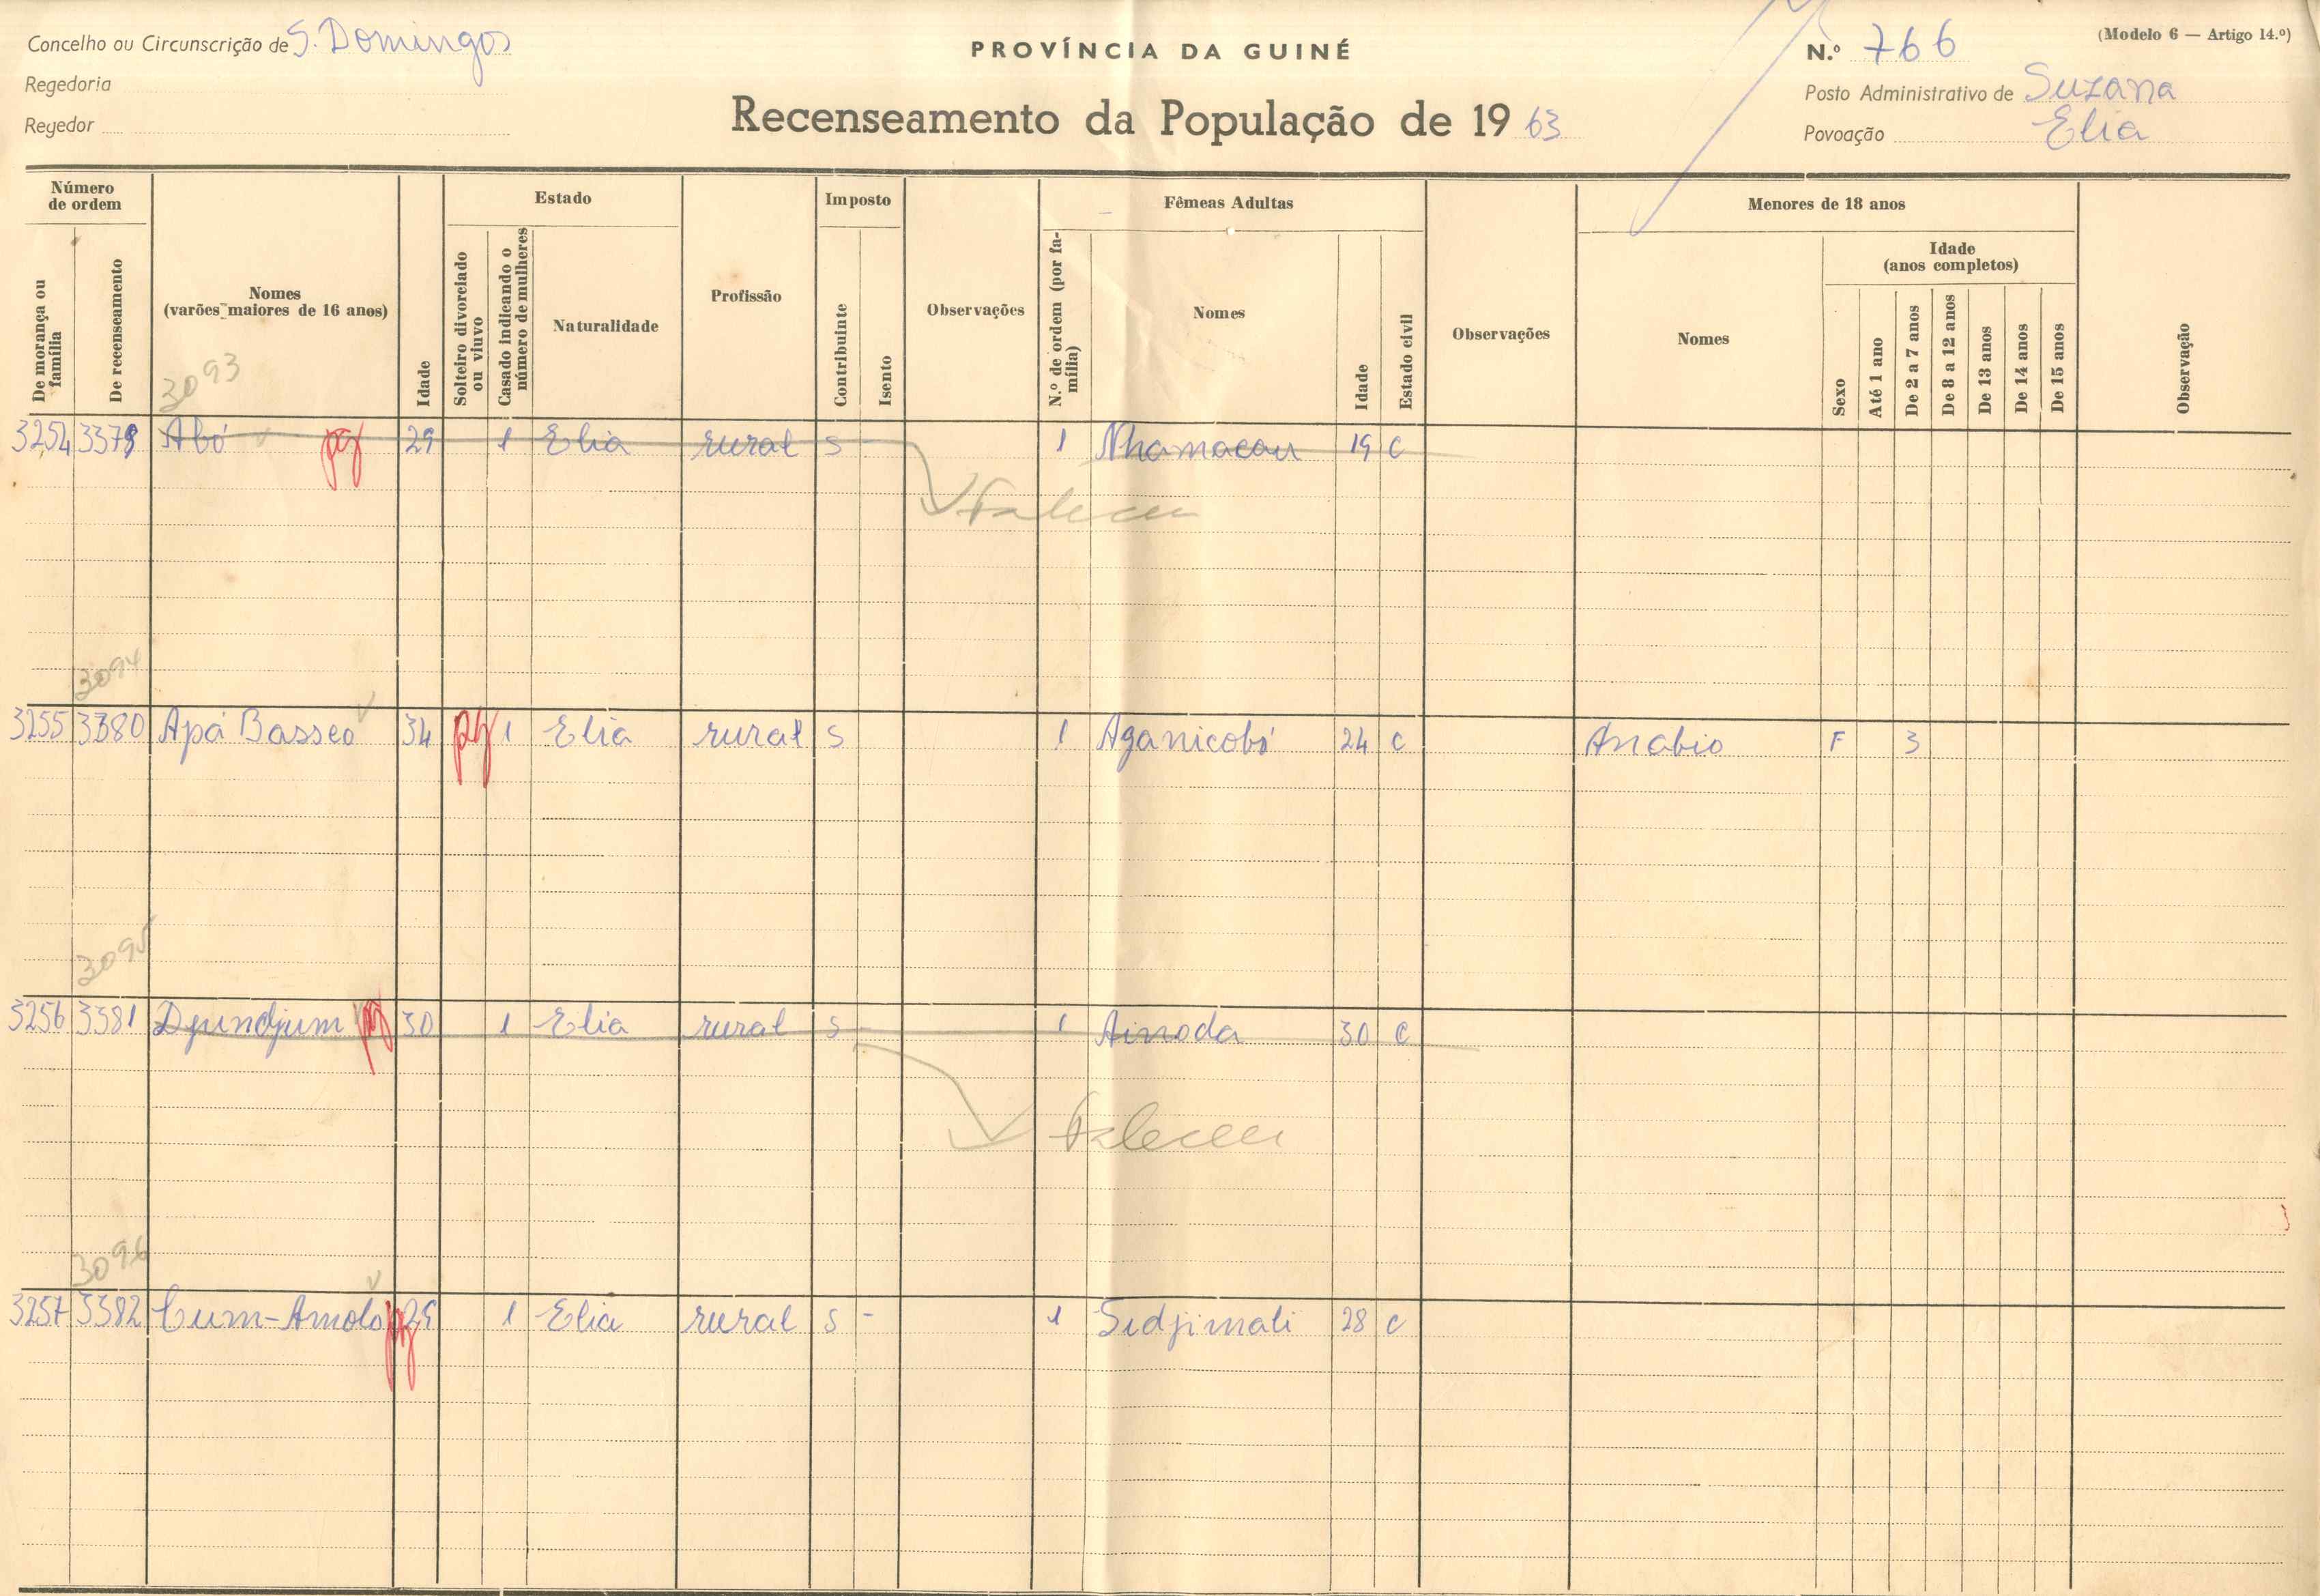 Concelho ou Circunscrição de S. Domingos
Regedoria
Regedor
PROVÍNCIA DA GUINÉ
Recenseamento da População de 1963
(Modelo 6 — Artigo 14.º)
N.º 766
Posto Administrativo de Suzana
Povoação Elia
Número de ordem
De morança ou família
De recenseamento
Nomes (varões maiores de 16 anos)
Idade
Estado
Solteiro divorciado ou viuvo
Casado indicando o número de mulheres
Naturalidade
Profissão
Imposto
Contribuinte
Isento
Observações
Fêmeas Adultas
N.º de ordem (por família)
Nomes
Idade
Estado civil
Observações
Menores de 18 anos
Nomes
Idade (anos completos)
Sexo
Até 1 ano
De 2 a 7 anos
De 8 a 12 anos
De 13 anos
De 14 anos
De 15 anos
Observação
3093
3254 3379 Abó pg 29 1 Elia rural s - 1 Nhamacau 19 c
Faleceu
3094
3255 3380 Apá Basseo 34 pg 1 Elia rural s 1 Aganicobó 24 c Anabio F 3
3095
3256 3381 Djundjum pg 30 1 Elia rural s - 1 Ainoda 30 c
Faleceu
3096
3257 3382 Cum-Amolo pg 29 1 Elia rural s - 1 Sidjimali 28 c